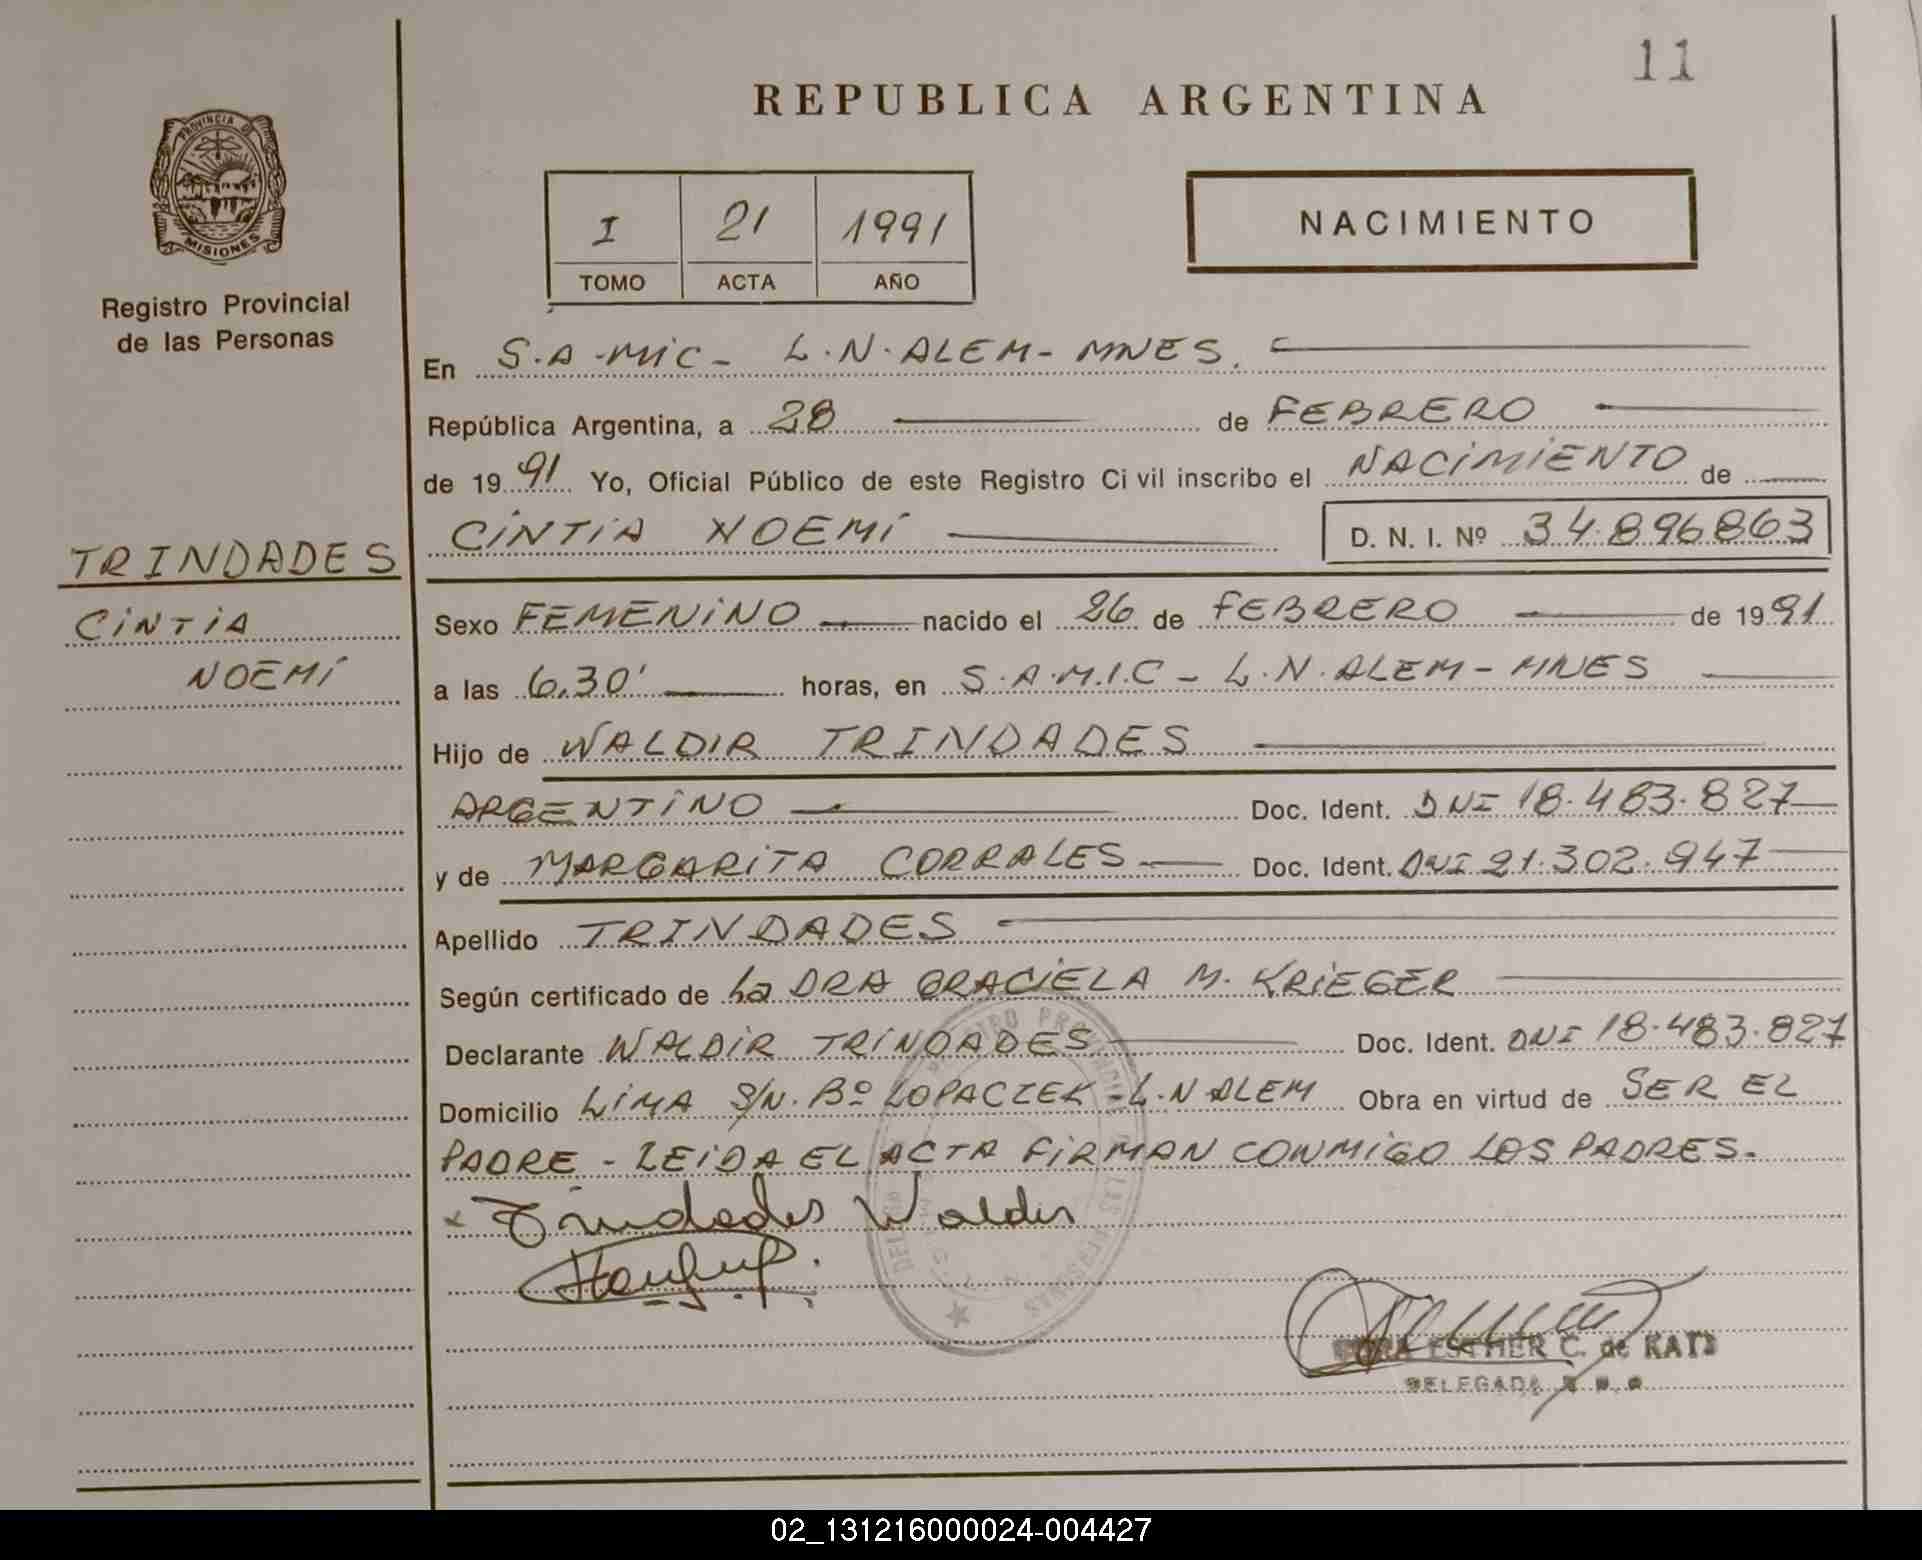 11
REPUBLICA ARGENTINA
PROVINCIA DE
MISIONES
Registro Provincial
de las Personas
I 21 1991
TOMO ACTA AÑO
NACIMIENTO
En S.A.MIC- L.N.ALEM- MNES.
República Argentina, a 28 de FEBRERO
de 1991 Yo, Oficial Público de este Registro Ci vil inscribo el NACIMIENTO de
CINTIA NOEMI D. N. I. Nº 34.896863
TRINDADES
CINTIA
NOEMI
Sexo FEMENINO nacido el 26 de FEBRERO de 1991
a las 6.30' horas, en S.A.M.I.C - L.N.ALEM - MNES
Hijo de WALDIR TRINDADES
ARGENTINO Doc. Ident. DNI 18.483.827
y de MARGARITA CORRALES Doc. Ident. DNI 21.302.947
Apellido TRINDADES
Según certificado de La DRA GRACIELA M. KRIEGER
Declarante WALDIR TRINDADES Doc. Ident. DNI 18.483.827
Domicilio LIMA S/N. Bº LOPACZEK - L.N ALEM Obra en virtud de SER EL
PADRE - LEIDA EL ACTA FIRMAN CONMIGO LOS PADRES.
x Trindades Waldir
ESTHER C. de KATZ
DELEGADA
02_131216000024-004427